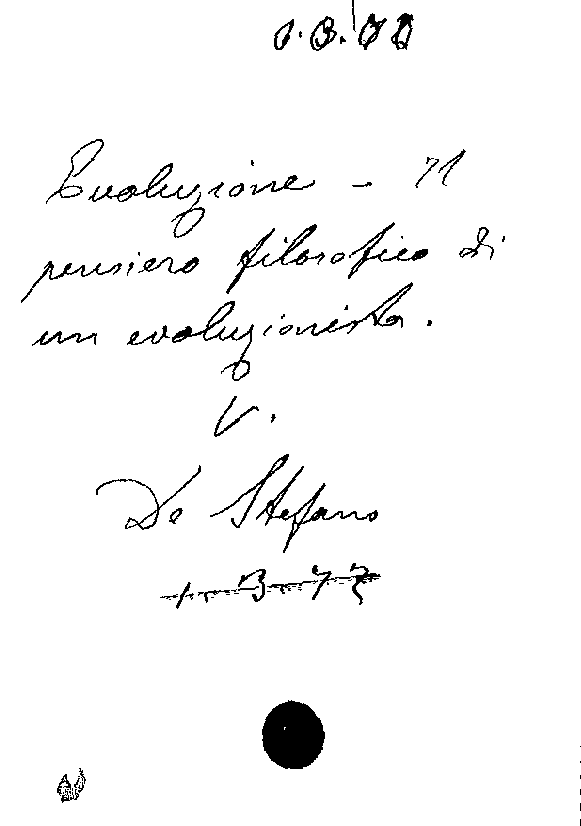 Evoluzione - Il
pensiero filosofico di
un evoluzionista.
V.
De Stefano
1. B. 72